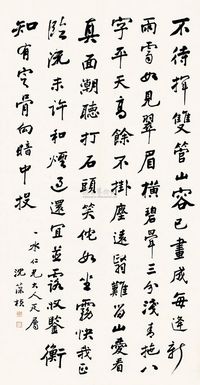 不待揮雙管山容已畫成每逢新
雨霽如見翠眉橫碧暈三分淺青拖八
字平天高餘不掛塵遠翳難留山愛看
真面潮聽打石頭笑他如坐霧快我正
臨流未許和煙過還宜並露收鑒衡
知有定肯向暗中投
仁兄大人正屬
沈葆楨